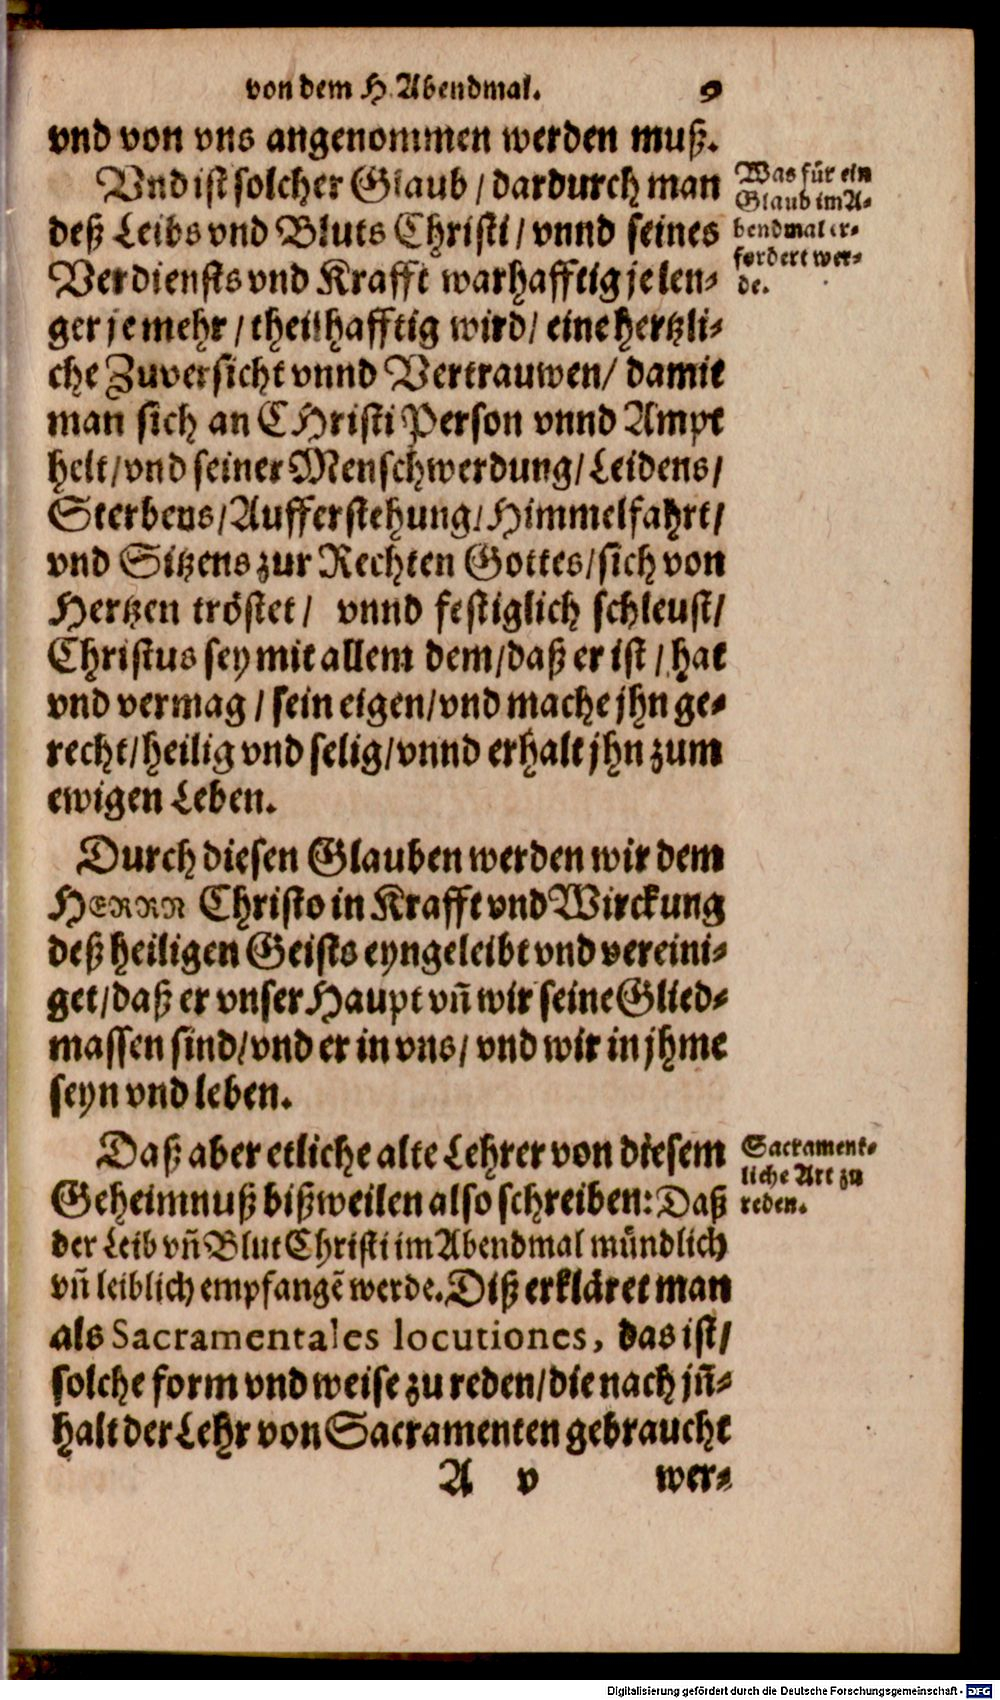 von dem H. Abendmal. 9
vnd von vns angenommen werden muß.
Vnd ist solcher Glaub / dardurch man
deß Leibs vnd Bluts Christi / vnnd seines
Verdiensts vnd Krafft warhafftig je len-
ger je mehr / theilhafftig wird / eine hertzli-
che Zuversicht vnnd Vertrauwen / damit
man sich an CHristi Person vnnd Ampt
helt / vnd seiner Menschwerdung / Leidens /
Sterbens / Aufferstehung / Himmelfahrt /
vnd Sitzens zur Rechten Gottes / sich von
Hertzen tröstet / vnnd festiglich schleust /
Christus sey mit allem dem / daß er ist / hat
vnd vermag / sein eigen / vnd mache jhn ge-
recht / heilig vnd selig / vnnd erhalt jhn zum
ewigen Leben.
Was für ein
Glaub im A-
bendmal er-
fordert wer-
de.
Durch diesen Glauben werden wir dem
HERRN Christo in Krafft vnd Wirckung
deß heiligen Geists eyngeleibt vnd vereini-
get / daß er vnser Haupt vñ wir seine Glied-
massen sind / vnd er in vns / vnd wir in jhme
seyn vnd leben.
Daß aber etliche alte Lehrer von diesem
Geheimnuß bißweilen also schreiben: Daß
der Leib vñ Blut Christi im Abendmal mündlich
vñ leiblich empfangẽ werde. Diß erkläret man
als Sacramentales locutiones, das ist /
solche form vnd weise zu reden / die nach jñ-
halt der Lehr von Sacramenten gebraucht
Sacrament-
liche Art zu
reden.
A v wer-
Digitalisierung gefördert durch die Deutsche Forschungsgemeinschaft - DFG